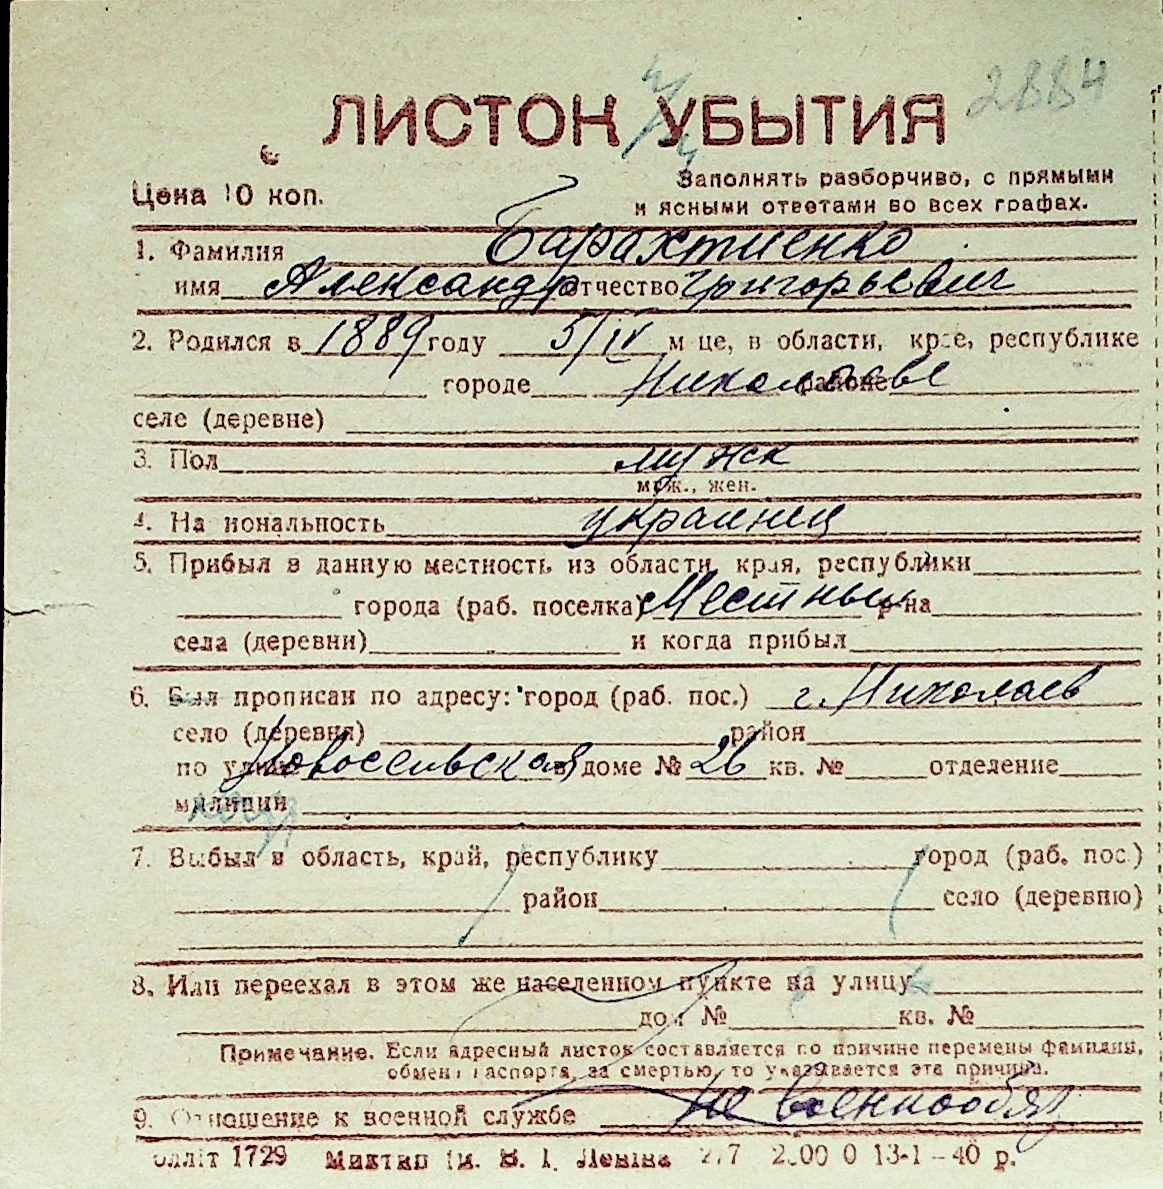 2884
ЛИСТОК УБЫТИЯ
Цена 10 коп.
Заполнять разборчиво, с прямыми
и ясными ответами во всех графах.
1. Фамилия Барахтиенко
имя Александр отчество Григорьевич
2. Родился в 1889 году 5/IV м-це, в области, крае, республике
городе Николаеве районе
селе (деревне)
3. Пол мужск
муж., жен.
4. Национальность украинец
5. Прибыл в данную местность из области, края, республики
города (раб. поселка) Местный р-на
села (деревни) и когда прибыл
6. Был прописан по адресу: город (раб. пос.) г. Николаев
село (деревня) район
по улице Новосельская в доме № 26 кв. № отделение
милиции
7. Выбыл в область, край, республику город (раб. пос.)
район село (деревню)
8. Или переехал в этом же населенном пункте на улицу
дом № кв. №
Примечание. Если адресный листок составляется по причине перемены фамилии,
обмена паспорта, за смертью, то указывается эта причина.
9. Отношение к военной службе не военнообяз
оллiт 1729 ім. В. І. Леніна 13-1-40 р.